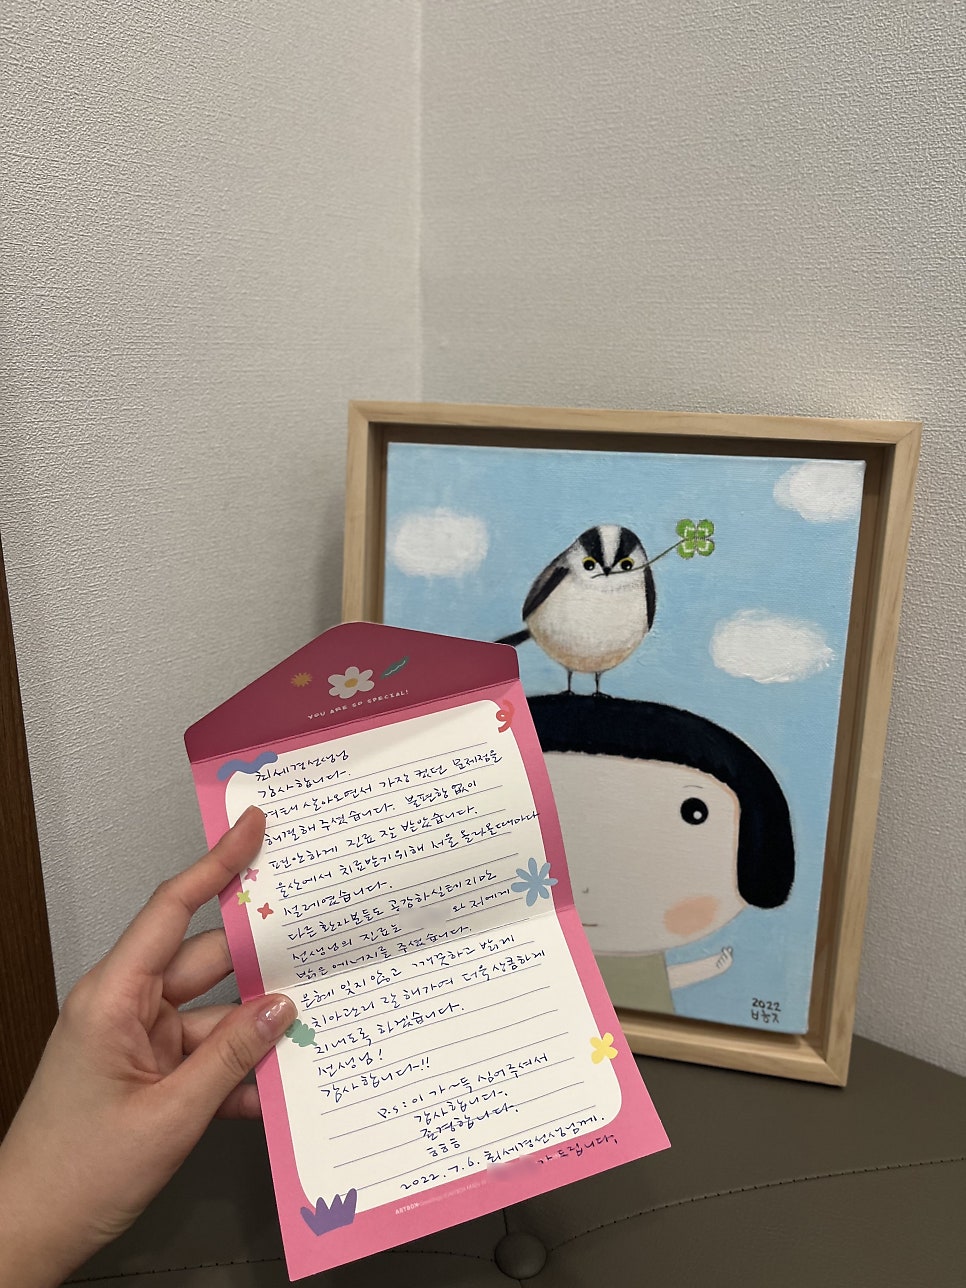 YOU ARE SO SPECIAL!
최세경선생님
감사합니다.
여태 살아오면서 가장 컸던 문제점을
해결해 주셨습니다. 불편함 없이
편안하게 진료 잘 받았습니다.
울산에서 치료받기위해 서울 올라올때마다
설레였습니다.
다른 환자분들도 공감하실테지만
선생님의 진료는 와 저에게
밝은 에너지를 주셨습니다.
은혜 잊지 않고 깨끗하고 밝게
치아관리 잘 해가며 더욱 상큼하게
지내도록 하겠습니다.
선생님!
감사합니다~!!
P.S : 이 가~득 심어주셔서
감사합니다.
존경합니다.
ㅎㅎㅎ
2022. 7. 6. 최세경선생님께.
가 드립니다
ARTBOX
2022